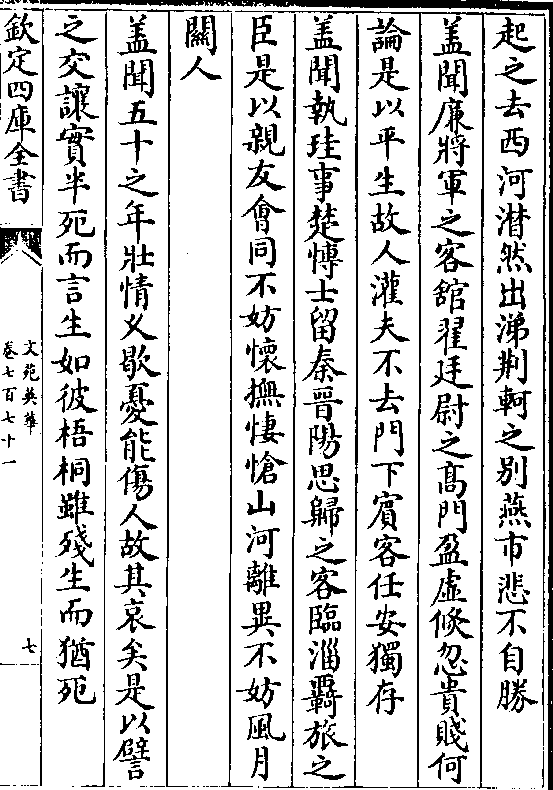 起之去西河潸然出涕荆軻之别燕市悲不自勝
蓋聞廉將軍之客舘翟廷尉之髙門盈虚倐忽貴賤何
論是以平生故人灌夫不去門下賔客任安獨存
蓋聞執珪事楚慱士留秦晉陽思歸之客臨淄羇旅之
臣是以親友會同不妨懷撫悽愴山河離異不妨風月
關人
蓋聞五十之年壯情乂歇憂能傷人故其哀矣是以譬
之交讓實半死而言生如彼梧桐雖殘生而猶死
欽定四庫全書
文苑英華
卷七百七十一
七